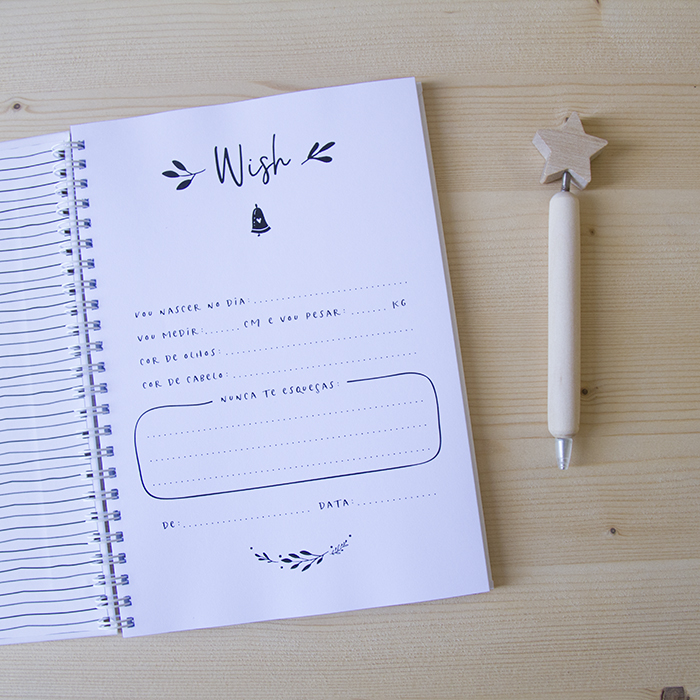 Wish
VOU NASCER NO DIA:
VOU MEDIR:...... CM E VOU PESAR:....... KG
COR DE OLHOS:
COR DE CABELO:
NUNCA TE ESQUEÇAS:
DE: DATA: